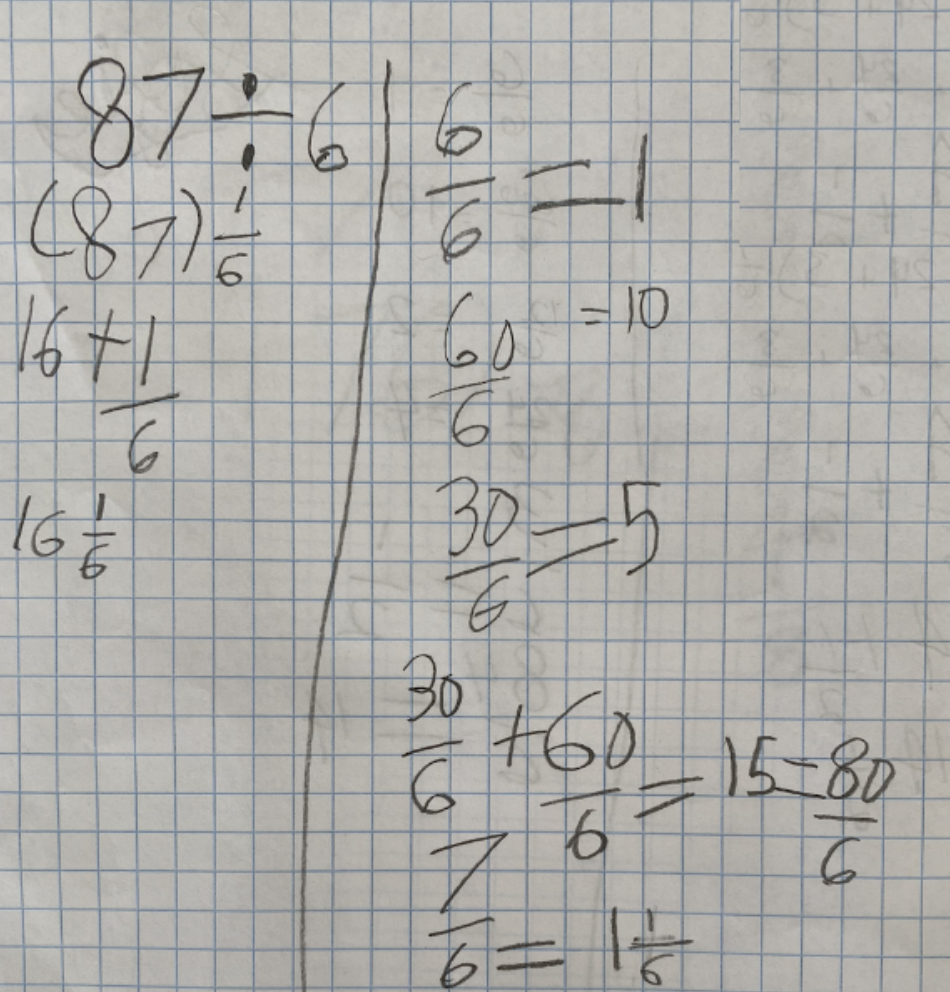 87 ÷ 6
(87) 1/6
16 + 1/6
16 1/6
6/6 = 1
60/6 = 10
30/6 = 5
30/6 + 60/6 = 15 = 80/6
7/6 = 1 1/6